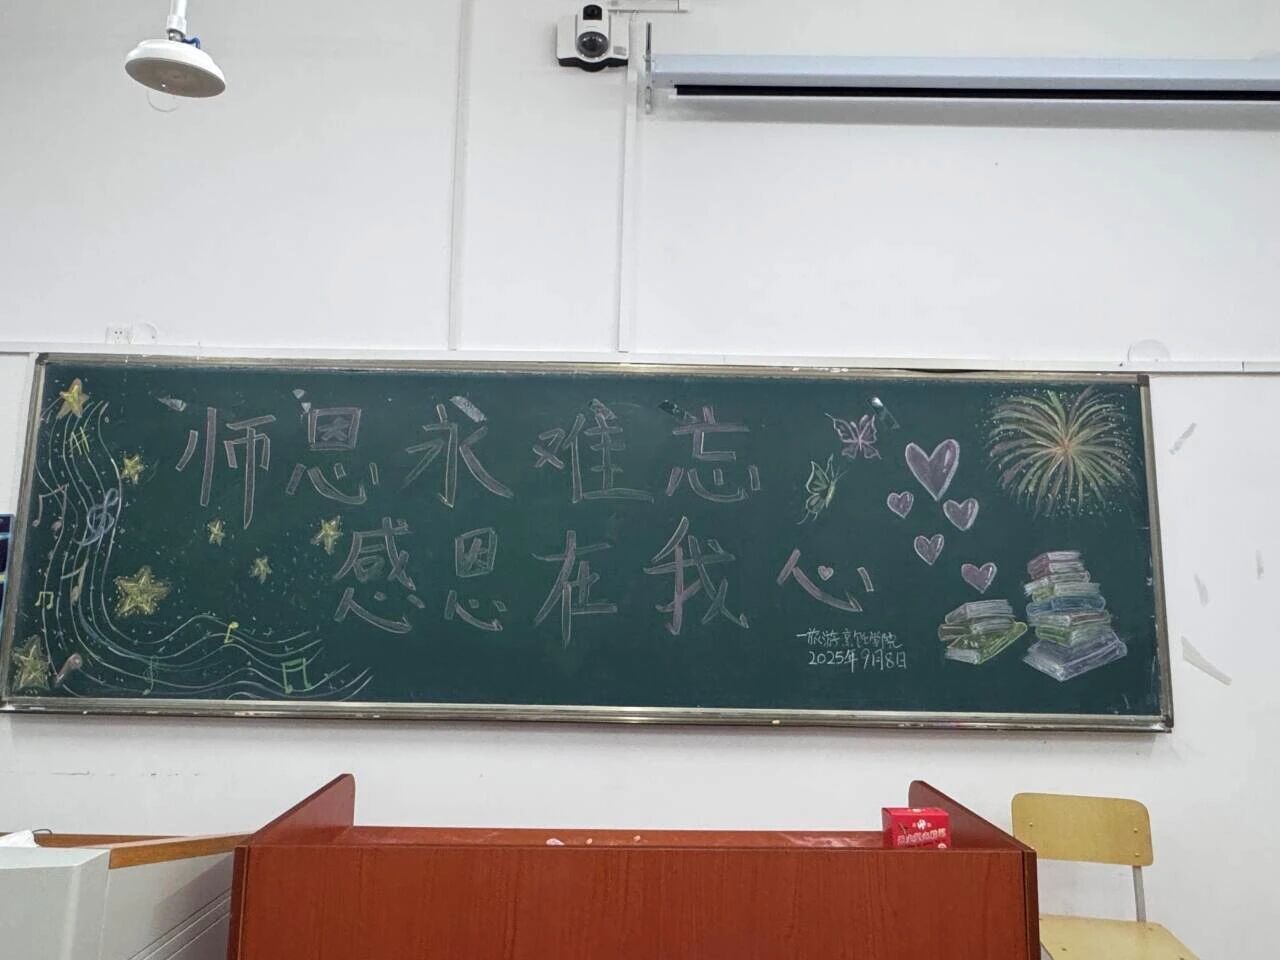 师恩永难忘
感恩在我心
一旅游烹饪学院
2025年9月8日